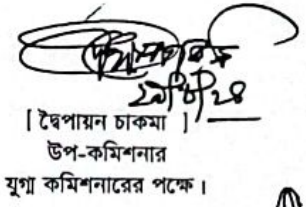 [ দ্বৈপায়ন চাকমা ]
উপ-কমিশনার
যুগ্ম কমিশনারের পক্ষে।